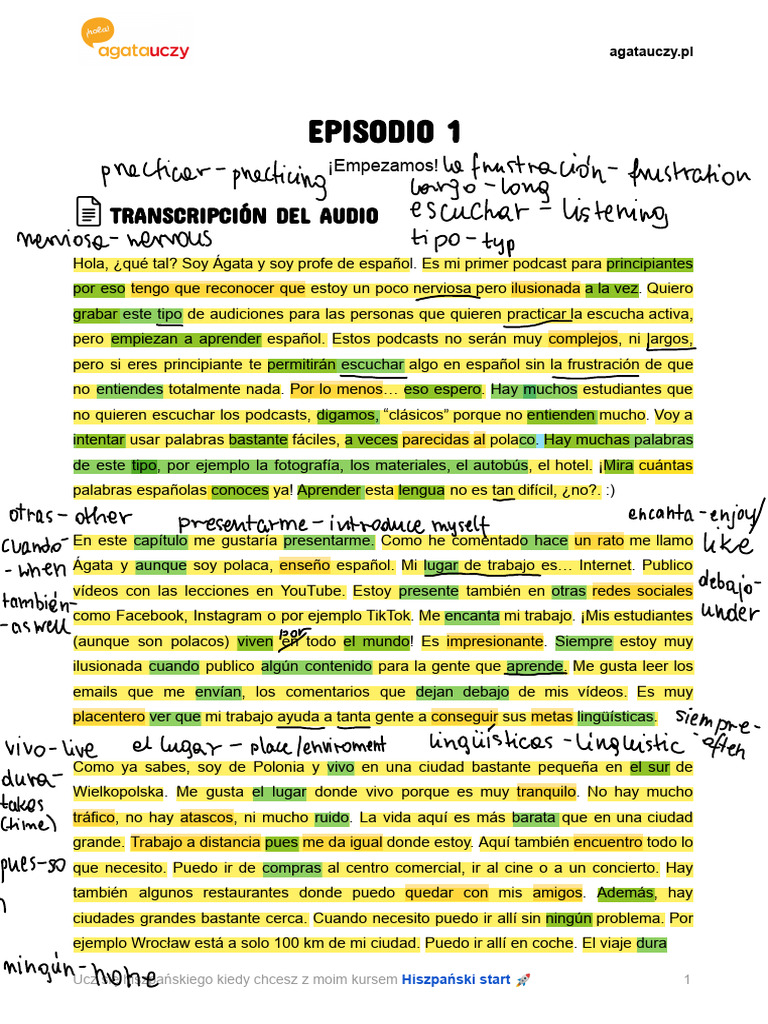 hola
agatauczy
agatauczy.pl
EPISODIO 1
¡Empezamos!
practicar - practicing
la frustración - frustration
largo - long
TRANSCRIPCIÓN DEL AUDIO
escuchar - listening
nerviosa - nervous
tipo - typ
Hola, ¿qué tal? Soy Ágata y soy profe de español. Es mi primer podcast para principiantes
por eso tengo que reconocer que estoy un poco nerviosa pero ilusionada a la vez. Quiero
grabar este tipo de audiciones para las personas que quieren practicar la escucha activa,
pero empiezan a aprender español. Estos podcasts no serán muy complejos, ni largos,
pero si eres principiante te permitirán escuchar algo en español sin la frustración de que
no entiendes totalmente nada. Por lo menos… eso espero. Hay muchos estudiantes que
no quieren escuchar los podcasts, digamos, “clásicos” porque no entienden mucho. Voy a
intentar usar palabras bastante fáciles, a veces parecidas al polaco. Hay muchas palabras
de este tipo, por ejemplo la fotografía, los materiales, el autobús, el hotel. ¡Mira cuántas
palabras españolas conoces ya! Aprender esta lengua no es tan difícil, ¿no?. :)
otras - other
presentarme - introduce myself
encanta - enjoy/
like
cuando -
- when
también -
- as well
debajo -
under
En este capítulo me gustaría presentarme. Como he comentado hace un rato me llamo
Ágata y aunque soy polaca, enseño español. Mi lugar de trabajo es… Internet. Publico
vídeos con las lecciones en YouTube. Estoy presente también en otras redes sociales
como Facebook, Instagram o por ejemplo TikTok. Me encanta mi trabajo. ¡Mis estudiantes
por
(aunque son polacos) viven en todo el mundo! Es impresionante. Siempre estoy muy
ilusionada cuando publico algún contenido para la gente que aprende. Me gusta leer los
emails que me envían, los comentarios que dejan debajo de mis vídeos. Es muy
placentero ver que mi trabajo ayuda a tanta gente a conseguir sus metas lingüísticas.
siempre -
- often
vivo - live
el lugar - place/enviroment
lingüísticas - linguistic
dura -
takes
(time)
pues - so
Como ya sabes, soy de Polonia y vivo en una ciudad bastante pequeña en el sur de
Wielkopolska. Me gusta el lugar donde vivo porque es muy tranquilo. No hay mucho
tráfico, no hay atascos, ni mucho ruido. La vida aquí es más barata que en una ciudad
grande. Trabajo a distancia pues me da igual donde estoy. Aquí también encuentro todo lo
que necesito. Puedo ir de compras al centro comercial, ir al cine o a un concierto. Hay
también algunos restaurantes donde puedo quedar con mis amigos. Además, hay
ciudades grandes bastante cerca. Cuando necesito puedo ir allí sin ningún problema. Por
ejemplo Wrocław está a solo 100 km de mi ciudad. Puedo ir allí en coche. El viaje dura
ningún - none
hiszpańskiego kiedy chcesz z moim kursem Hiszpański start 🚀
1